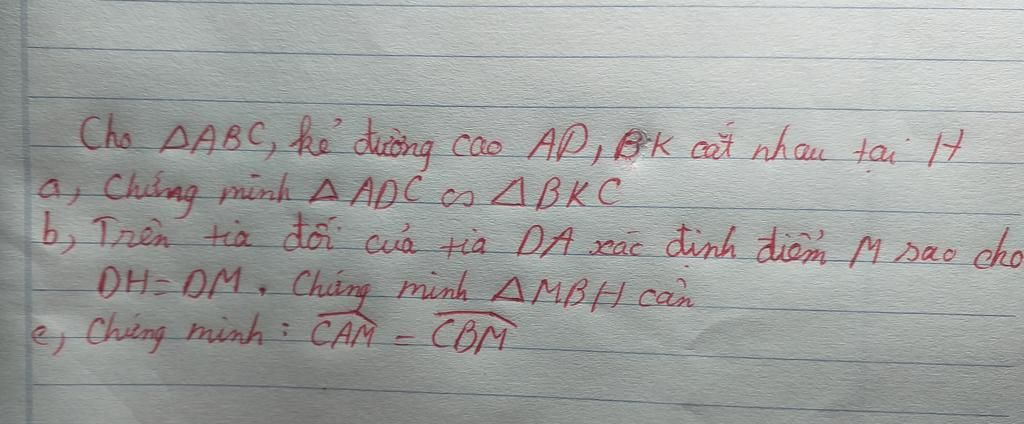 Cho ΔABC, kẻ đường cao AD, BK cắt nhau tại H
a, Chứng minh Δ ADC ∽ ΔBKC
b, Trên tia đối của tia DA xác định điểm M sao cho
DH = DM. Chứng minh ΔMBH cân
c, Chứng minh : \widehat{CAM} = \widehat{CBM}